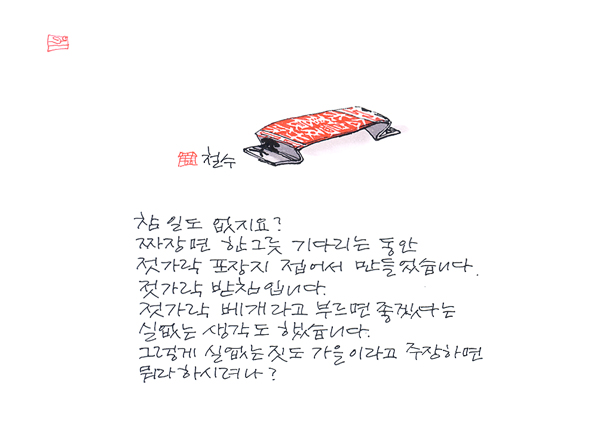 철수
참 일도 없지요?
짜장면 한그릇 기다리는 동안
젓가락 포장지 접어서 만들었습니다.
젓가락 받침입니다.
젓가락 베개라고 부르면 좋겠다는
실없는 생각도 했습니다.
그렇게 실없는 짓도 가을이라고 주장하면
뭐라 하시려나?